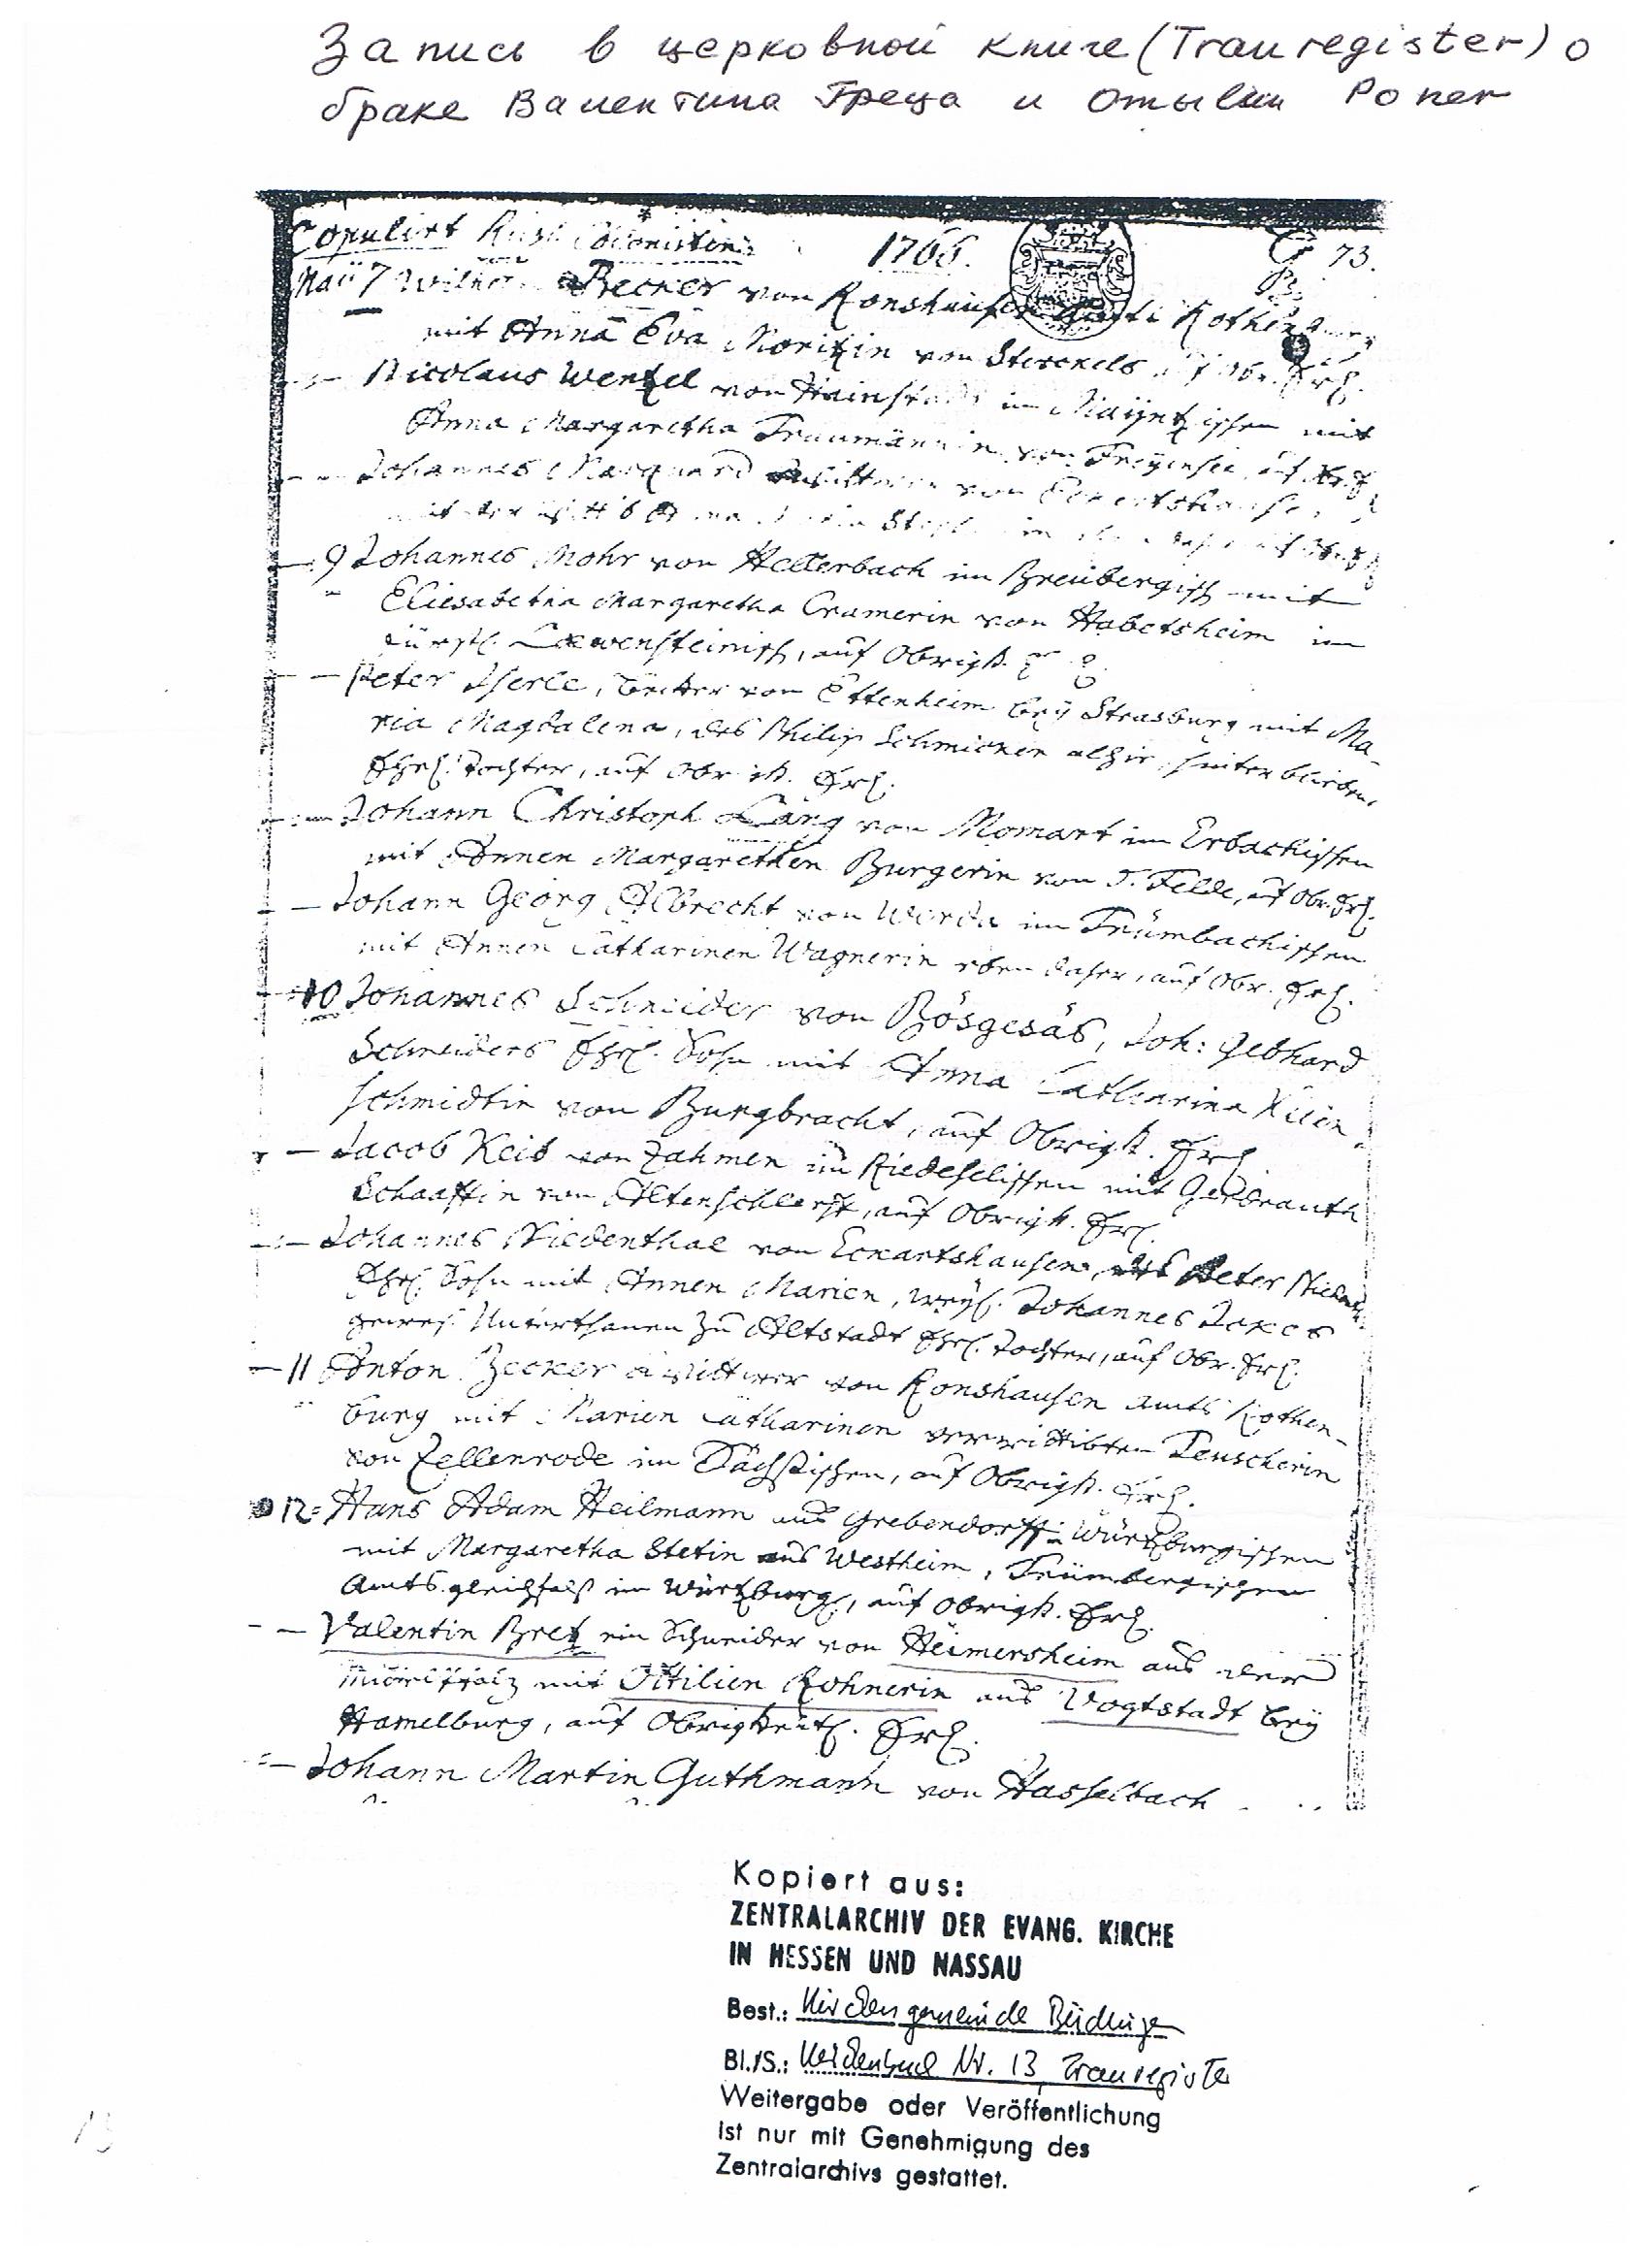 Запись в церковной книге (Trauregister) о
браке Валентина Греца и Отылии Ронer
Copulirt Russ. Colonisten
1766.
73.
Maii 7 Wilhelm Becker von Ronshausen Amts Rothenburg
mit Anna Eva Moritzin von Sterckels auf Obr. Erl.
Nicolaus Wentzel von Hainstadt im Maÿntzischen mit
Anna Margaretha Traumännin von Freyensee, auf
Johannes Marquard Wittwer von Eckartshausen,
mit der
9 Johannes Mohr von Hetterbach im Breubergisch mit
Eliesabetha Margaretha Cramerin von Habetsheim im
Fürstl. Loewensteinisch, auf Obrigk.
Peter Iserle, von Ettenheim beÿ Strasburg mit Ma-
ria Magdalena, des Philip Schmicken alhir hinterbliebene
Ehel. Tochter, auf Obrigk. Erl.
Johann Christoph Lang von Momart im Erbachischen
mit Annen Margarethen Burgerin von J. Felde, auf Obr. Erl.
Johann Georg Albrecht von Werda im Trümbachischen
mit Annen Catharinen Wagnerin eben daher, auf Obr. Erl.
10 Johannes Schneider von Bösgesäs, Joh: Gebhard
Schneiders Ehel. Sohn mit Anna Catharina Klein-
schmidtin von Burgbracht, auf Obrigk. Erl.
Jacob Keib von Zahmen im Riedeselischen mit Gerdrauth
Schaaffin von Altenschlerff, auf Obrigk. Erl.
Johannes Niedenthal von Eckartshausen, des Peter
Ehel. Sohn mit Annen Marien, weyl. Johannes
gewes. Unterthanen zu Altstadt Ehel. Tochter, auf Obr. Erl.
11 Anton Becker Wittwer von Ronshausen Amts Rothen-
burg mit Marien Catharinen verwittibten Teuscherin
von Zellenrode im Sächsischen, auf Obrigk. Erl.
12 Hans Adam Heilmann aus Grebendorff im Würtzburgischen
mit Margaretha Stetin aus Westheim, Trümbergischen
Amts gleichfals im Würtzburg., auf Obrigk. Erl.
Valentin Bretz ein Schneider von Heimersheim aus der
mit Ottilien Rohnerin aus Vogtstadt beÿ
Hamelburg, auf Obrigkeitl. Erl.
Johann Martin Guthmann von Hasselbach
Kopiert aus:
ZENTRALARCHIV DER EVANG. KIRCHE
IN HESSEN UND NASSAU
Best.: Kirchengemeinde Büdingen
Bl./S.: Kirchenbuch Nr. 13, Trauregister
Weitergabe oder Veröffentlichung
ist nur mit Genehmigung des
Zentralarchivs gestattet.